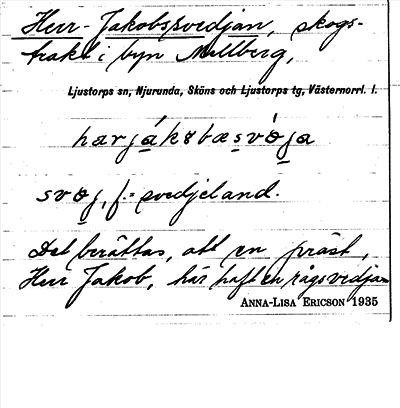 Herr-Jakobssvedjan, skogs-
trakt i byn Mellberg,
Ljustorps sn, Njurunda, Sköns och Ljustorps tg, Västernorrl. l.
svøj, f. = svedjeland.
Det berättas, att en präst,
Herr Jakob, här haft en rågsvedjan
ANNA-LISA ERICSON 1935